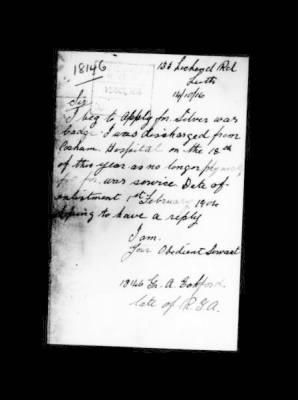 18146
Lochend Rd
Leith
14/10/16
Sir
I beg to apply for Silver war
badge I was discharged from
Cosham Hospital on the 18th
of this year as no longer physically
for war service Date of
enlistment 1st February 1904
hoping to have a reply
I am.
Your Obedient Servant
18146 Gr. A.
late of R.G.A.